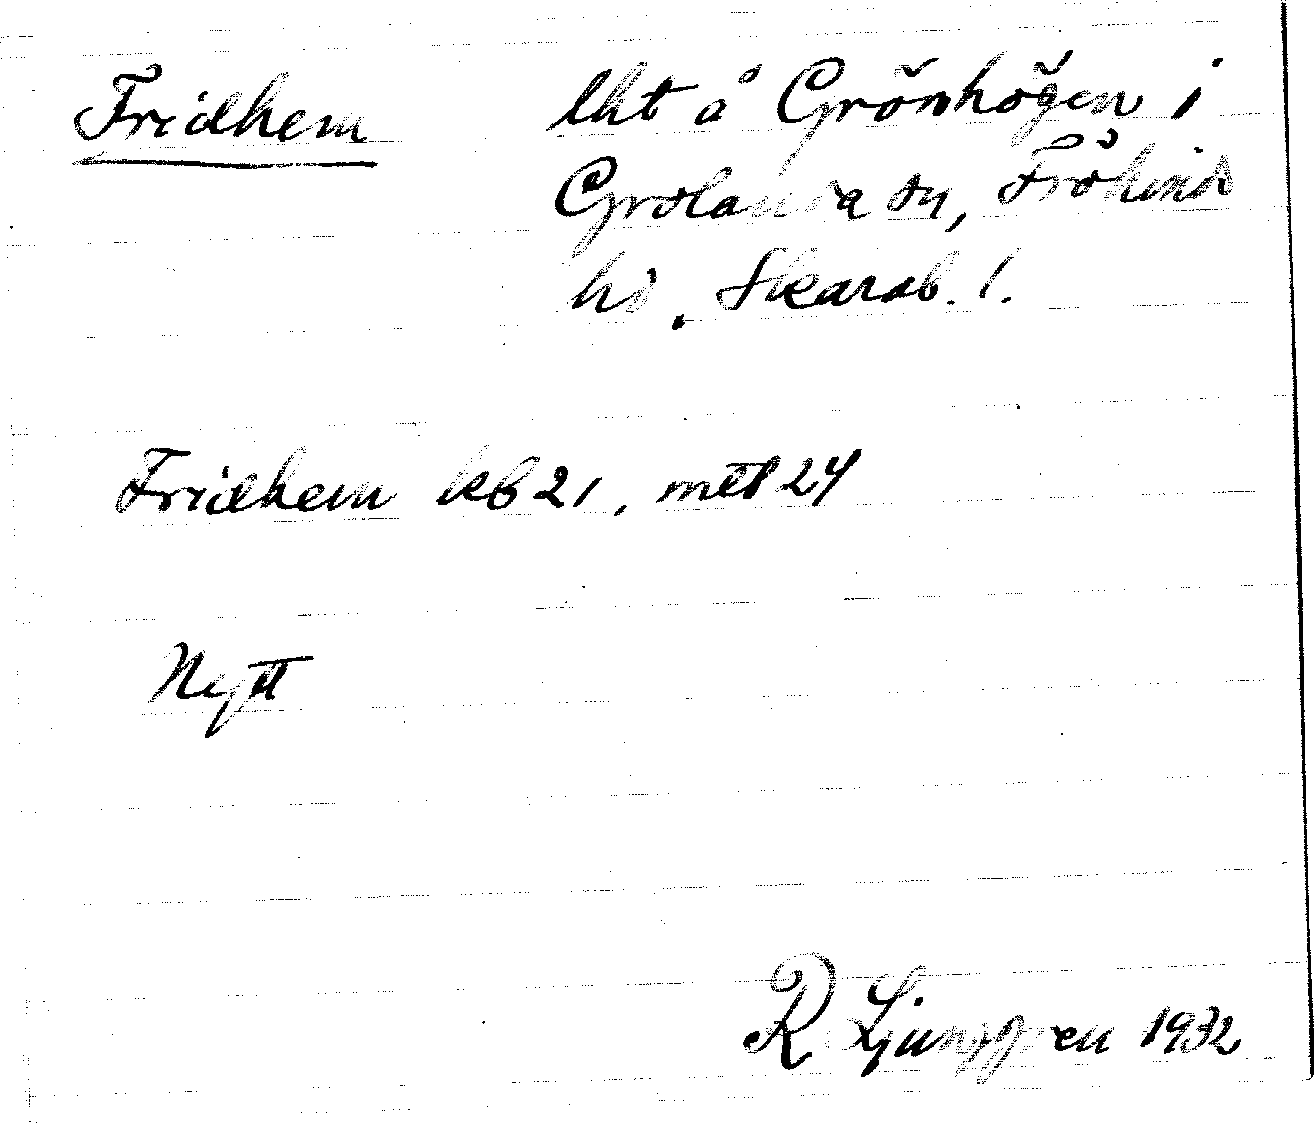 Fridhem lht å Grönhögen i
Grolanda sn, Frökinds
hd. Skarab. l.
Fridhem kb 21, mtl 24
Nytt
R Ljunggren 1932